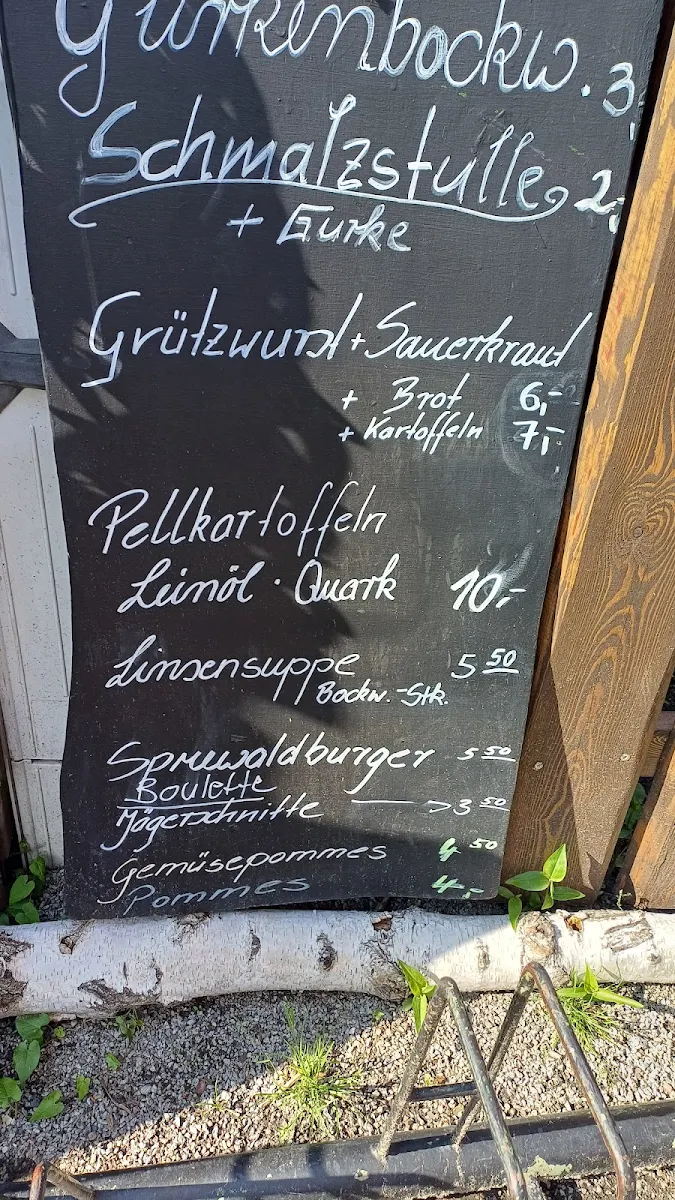 Gurkenbockw. 3,
Schmalzstulle 2,-
+ Gurke
Grützwurst + Sauerkraut
+ Brot 6,-
+ Kartoffeln 7,-
Pellkartoffeln
Leinöl · Quark 10,-
Linsensuppe 5 50
Bockw.-Stk.
Spreewaldburger 5 50
Boulette
Jägerschnitte —> 3 50
Gemüsepommes 4 50
Pommes 4,-